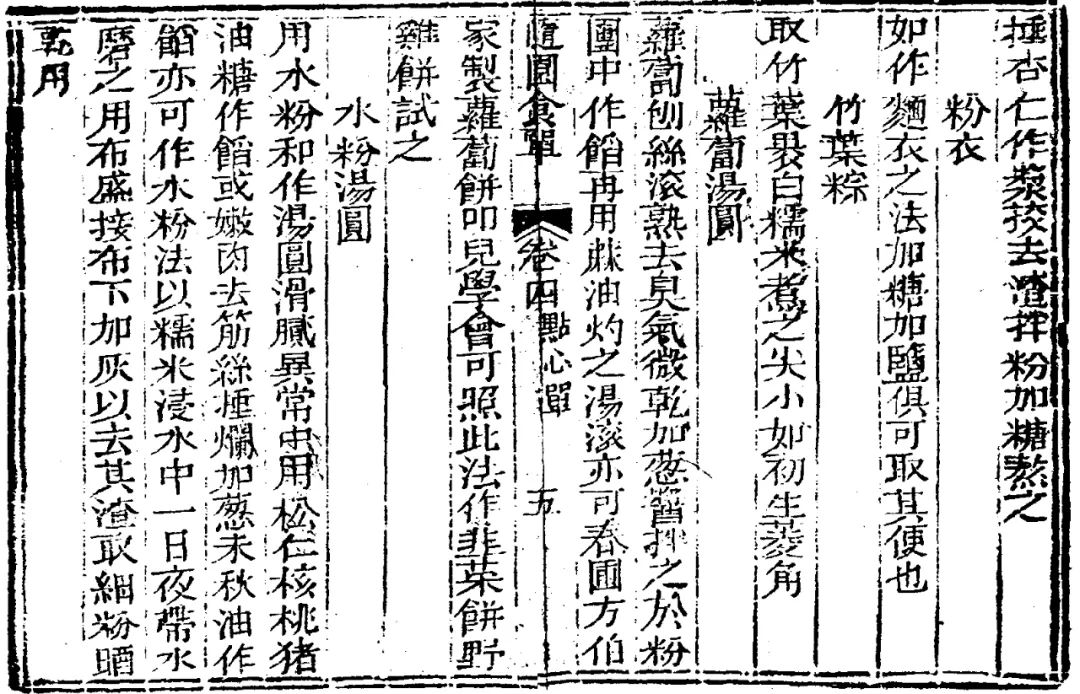 捶杏仁作漿挍去渣拌粉加糖熬之
粉衣
如作麵衣之法加糖加鹽俱可取其便也
竹葉粽
取竹葉裹白糯米煮之尖小如初生菱角
蘿蔔湯圓
蘿蔔刨絲滚熟去臭氣微乾加葱醬拌之於粉
團中作餡再用蔴油灼之湯滚亦可春圃方伯
隨園食單 卷四點心單 五
家製蘿蔔餅叩兒學會可照此法作韭菜餅野
雞餅試之
水粉湯圓
用水粉和作湯圓滑膩異常中用松仁核桃猪
油糖作餡或嫩肉去筋絲捶爛加葱末秋油作
餡亦可作水粉法以糯米浸水中一日夜帶水
磨之用布盛接布下加灰以去其渣取細粉晒
乾用